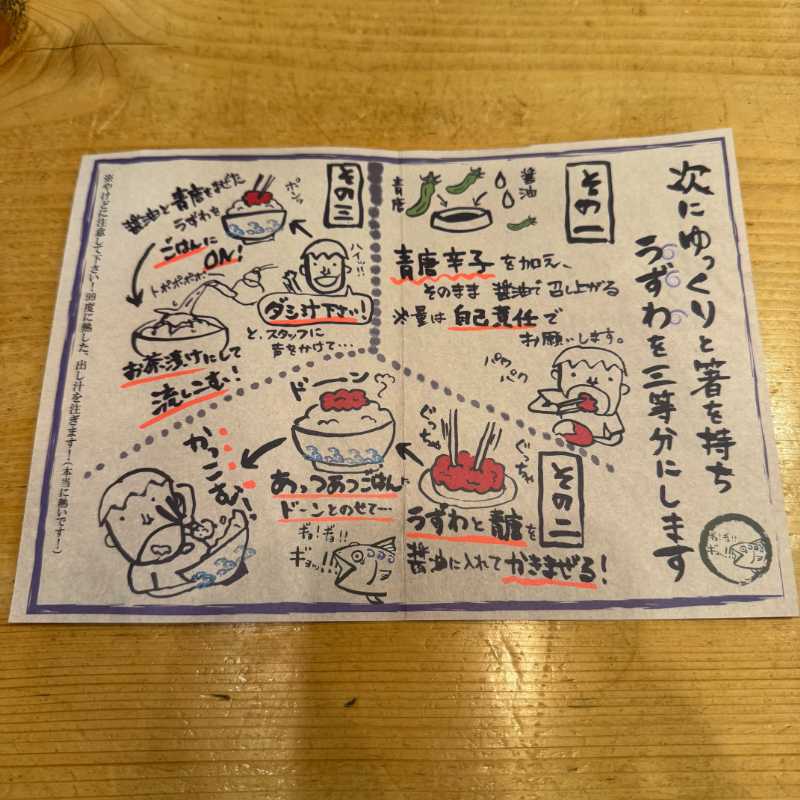 次にゆっくりと箸を持ち
うずわを三等分にします
ギョ!ギョ!!
ギョッ!!
その一
醤油
青唐
青唐辛子を加え、
そのまま 醤油で召し上がる
※量は自己責任で
お願いします。
パク
パク
その二
ぐっちゃ
ぐっちゃ
うずわと青唐を
醤油に入れてかきまぜる!
ドーン
あっつあつごはんに
ドーンとのせて…
ギョ!ギョ!!
ギョッ!!
かっこむ!
その三
ポンッ
醤油と青唐をまぜた
うずわを
ごはんに
ON!
ハイッ!!
ダシ汁下さい!
と、スタッフに
声をかけて…
トポポポポ
お茶漬けにして
流しこむ!
※やけどに注意して下さい!99度に熱した、出し汁を注ぎます!(本当に熱いです!)